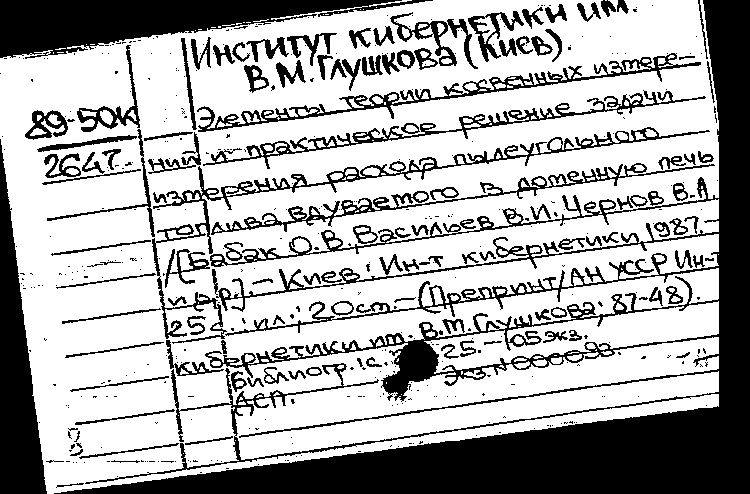 Институт кибернетики им.
В.М.Глушкова (Киев).
89-50К
2647
Элементы теории косвенных измере-
ний и практическое решение задачи
измерения расхода пылеугольного
топлива, вдуваемого в доменную печь
/[Бабак О.В., Васильев В.И., Чернов В.А.
и др.].- Киев: Ин-т кибернетики, 1987.-
25с.: ил.; 20см.- (Препринт/АН УССР, Ин-т
кибернетики им. В.М.Глушкова; 87-48).
Библиогр.: с. 25.- 105 экз.
Экз. N 00009з.
ДСП.